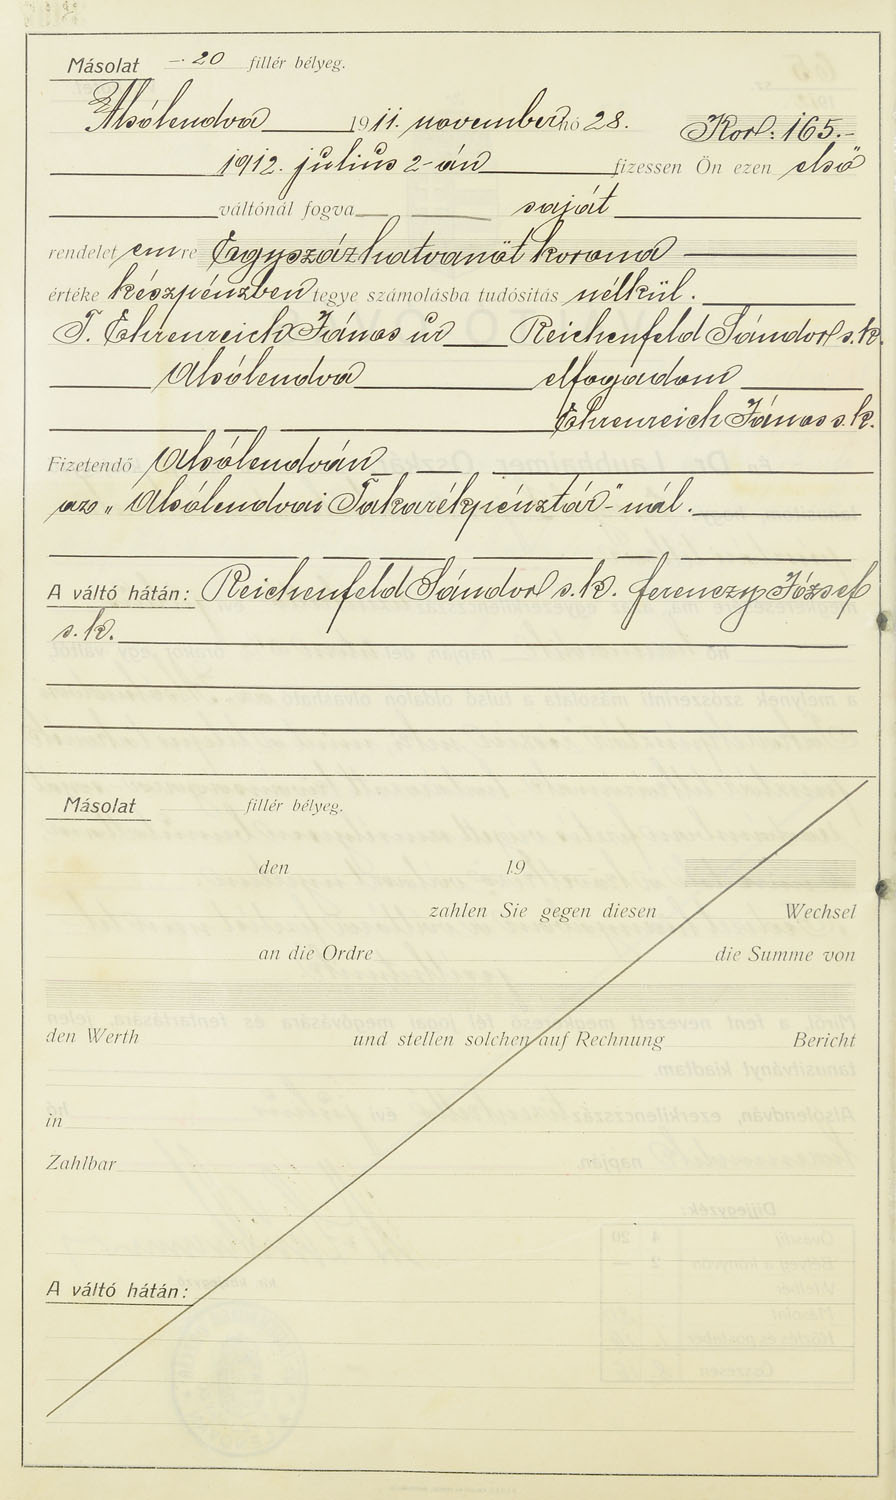 Másolat —·20 fillér bélyeg.
Alsólendva 1911. november hó 28. Kor: 165.-
1912. julius 2-án fizessen Ön ezen első
váltónál fogva saját
rendeletemre Egyszázhatvanöt korona
értéke készpénzben tegye számolásba tudósítás nélkül.
T. Ehrenreich János úr Reichenfeld Sándor s.k.
Alsólendva elfogadom
Ehrenreich János s.k.
Fizetendő Alsólendván
az „Alsólendvai Takarékpénztár"-nál.
A váltó hátán: Reichenfeld Sándor s.k. Ferenczy József
s.k.
Másolat fillér bélyeg.
den 19
zahlen Sie gegen diesen Wechsel
an die Ordre die Summe von
den Werth und stellen solchen auf Rechnung Bericht
in
Zahlbar
A váltó hátán: